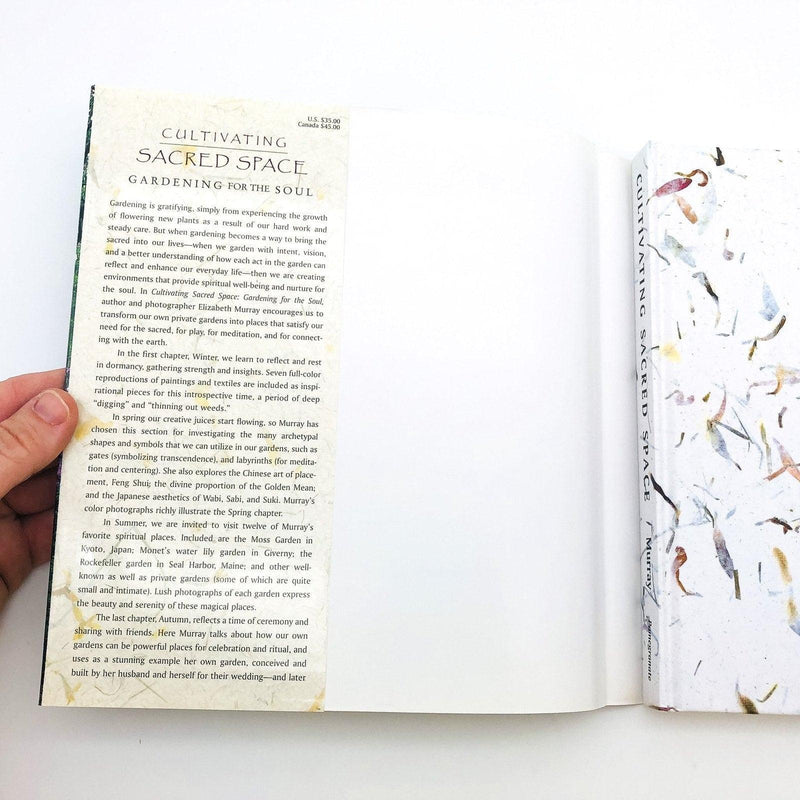 U.S. $35.00
Canada $45.00
CULTIVATING
SACRED SPACE
GARDENING FOR THE SOUL
Gardening is gratifying, simply from experiencing the growth
of flowering new plants as a result of our hard work and
steady care. But when gardening becomes a way to bring the
sacred into our lives—when we garden with intent, vision,
and a better understanding of how each act in the garden can
reflect and enhance our everyday life—then we are creating
environments that provide spiritual well-being and nurture for
the soul. In Cultivating Sacred Space: Gardening for the Soul,
author and photographer Elizabeth Murray encourages us to
transform our own private gardens into places that satisfy our
need for the sacred, for play, for meditation, and for connect-
ing with the earth.
In the first chapter, Winter, we learn to reflect and rest
in dormancy, gathering strength and insights. Seven full-color
reproductions of paintings and textiles are included as inspi-
rational pieces for this introspective time, a period of deep
“digging” and “thinning out weeds.”
In spring our creative juices start flowing, so Murray has
chosen this section for investigating the many archetypal
shapes and symbols that we can utilize in our gardens, such as
gates (symbolizing transcendence), and labyrinths (for medita-
tion and centering). She also explores the Chinese art of place-
ment, Feng Shui; the divine proportion of the Golden Mean;
and the Japanese aesthetics of Wabi, Sabi, and Suki. Murray's
color photographs richly illustrate the Spring chapter.
In Summer, we are invited to visit twelve of Murray's
favorite spiritual places. Included are the Moss Garden in
Kyoto, Japan; Monet's water lily garden in Giverny; the
Rockefeller garden in Seal Harbor, Maine; and other well-
known as well as private gardens (some of which are quite
small and intimate). Lush photographs of each garden express
the beauty and serenity of these magical places.
The last chapter, Autumn, reflects a time of ceremony and
sharing with friends. Here Murray talks about how our own
gardens can be powerful places for celebration and ritual, and
uses as a stunning example her own garden, conceived and
built by her husband and herself for their wedding—and later
CULTIVATING SACRED SPACE / Murray
Pomegranate